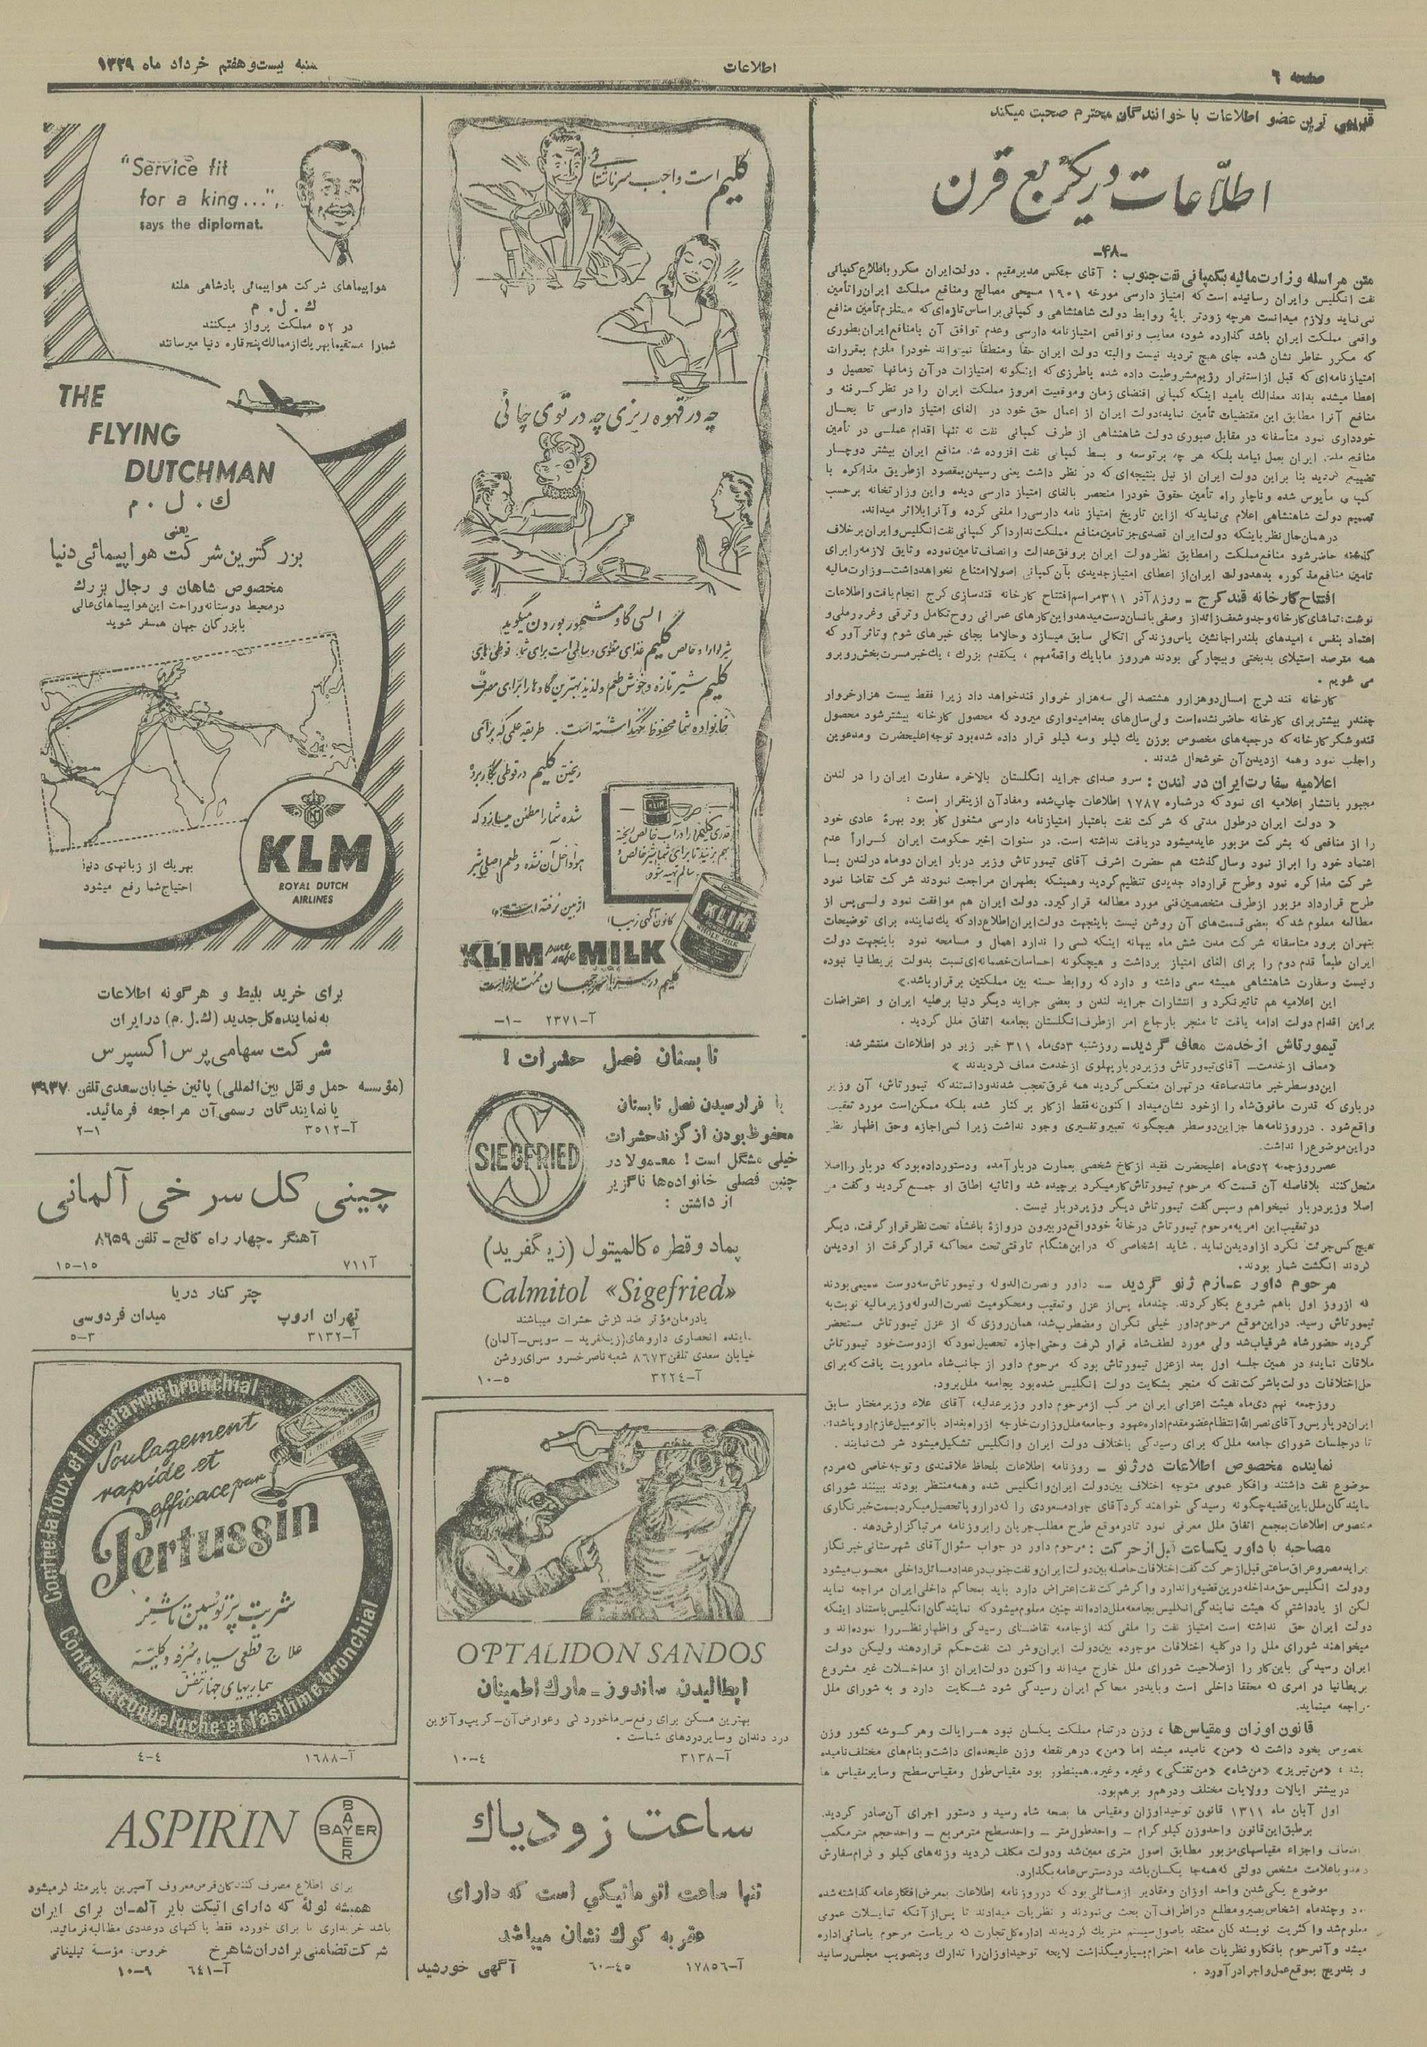 صفحه ٦
اطلاعات
شنبه بیست‌وهفتم خرداد ماه ۱۳۲۹
قدیمی ترین عضو اطلاعات با خوانندگان محترم صحبت میکند
اطلاعات در یکربع قرن
-۴۸-
متن مراسله وزارت مالیه بکمپانی نفت جنوب : آقای جکس مدیر مقیم . دولت ایران مکرر باطلاع کمپانی
نفت انگلیس و ایران رسانیده است که امتیاز دارسی مورخه ۱۹۰۱ مسیحی مصالح و منافع مملکت ایران را تأمین
نمی‌نماید ولازم میدانست هرچه زودتر پایهٔ روابط دولت شاهنشاهی و کمپانی براساس تازه‌ای که مستلزم تأمین منافع
واقعی مملکت ایران باشد گذارده شود، معایب ونواقص امتیازنامه دارسی وعدم توافق آن بامنافع ایران بطوری
که مکرر خاطر نشان شده جای هیچ تردید نیست والبته دولت ایران حقاً ومنطقاً نمیتواند خودرا ملزم بمقررات
امتیازنامه‌ای که قبل از استقرار رژیم مشروطیت داده شده باطرزی که اینگونه امتیازات درآن زمانها تحصیل و
اعطا میشده بداند معذالك بامید اینکه کمپانی اقتضای زمان وموقعیت امروز مملکت ایران را در نظر گرفته و
منافع آنرا مطابق این مقتضیات تأمین نماید، دولت ایران از اعمال حق خود در الغای امتیاز دارسی تا بحال
خودداری نمود متأسفانه در مقابل صبوری دولت شاهنشاهی از طرف کمپانی نفت نه تنها اقدام عملی در تأمین
منافع ملت ایران بعمل نیامد بلکه هر چه برتوسعه و بسط کمپانی نفت افزوده شد منافع ایران بیشتر دوچار
تضییع گردید بنا براین دولت ایران از نیل بنتیجه‌ای که در نظر داشت یعنی رسیدن بمقصود ازطریق مذاکره با
کمپانی مأیوس شده وناچار راه تأمین حقوق خودرا منحصر بالغای امتیاز دارسی دیده واین وزارتخانه برحسب
تصمیم دولت شاهنشاهی اعلام می‌نماید که ازاین تاریخ امتیاز نامه دارسی را ملغی کرده وآنرا بلااثر میداند.
درهمان حال نظر باینکه دولت ایران قصدی جز تأمین منافع مملکت ندارد اگر کمپانی نفت انگلیس وایران برخلاف
گذشته حاضر شود منافع مملکت را مطابق نظر دولت ایران بروفق عدالت وانصاف تامین نموده وثایق لازمه را برای
تامین منافع مذکوره بدهد دولت ایران از اعطای امتیاز جدیدی بآن کمپانی اصولا امتناع نخواهد داشت-وزارت مالیه
افتتاح کارخانه قند کرج - روز ۸ آذر ۳۱۱ مراسم افتتاح کارخانه قندسازی کرج انجام یافت و اطلاعات
همه مترصد استیلای بدبختی وبیچارگی بودند هر روز مابایك واقعهٔ مهم ، یکقدم بزرگ، یك خبر مسرت بخش روبرو
می شویم .
کارخانه قند کرج امسال دوهزارو هشتصد الی سه‌هزار خروار قند خواهد داد زیرا فقط بیست هزار خروار
چغندر بیشتر برای کارخانه حاضر نشده است ولی سال‌های بعد امیدواری میرود که محصول کارخانه بیشتر شود محصول
قند و شکر کارخانه که درجعبه‌های مخصوص بوزن یك کیلو وسه کیلو قرار داده شده‌بود توجه اعلیحضرت ومدعوین
راجلب نمود وهمه ازدیدن آن خوشحال شدند .
اعلامیه سفارت ایران در لندن : سرو صدای جراید انگلستان بالاخره سفارت ایران را در لندن
مجبور بانتشار اعلامیه ای نمود که درشماره ۱۷۸۷ اطلاعات چاپ شده ومفاد آن ازینقرار است :
« دولت ایران درطول مدتی که شرکت نفت باعتبار امتیازنامه دارسی مشغول کار بود بهرهٔ عادی خود
را از منافعی که بشرکت مزبور عاید میشود دریافت نداشته است. در سنوات اخیر حکومت ایران کراراً عدم
اعتماد خود را ابراز نمود وسال گذشته هم حضرت اشرف آقای تیمورتاش وزیر دربار ایران دوماه درلندن بـا
شرکت مذاکره نمود وطرح قرارداد جدیدی تنظیم گردید وهمینکه بطهران مراجعت نمودند شرکت تقاضا نمود
طرح قرارداد مزبور ازطرف متخصصین فنی مورد مطالعه قرارگیرد. دولت ایران هم موافقت نمود ولی پس از
مطالعه معلوم شد که بعضی قسمت‌های آن روشن نیست باینجهت دولت ایران اطلاع داد که یك نماینده برای توضیحات
بتهران برود متاسفانه شرکت مدت شش ماه ببهانه اینکه کسی را ندارد اهمال و مسامحه نمود باینجهت دولت
ایران طبعاً قدم دوم را برای الغای امتیاز برداشت و هیچگونه احساسات خصمانه‌ای نسبت بدولت بریطانیا نبوده
ونیست وسفارت شاهنشاهی همیشه سعی داشته و دارد که روابط حسنه بین مملکتین برقرار باشد.»
این اعلامیه هم تاثیر نکرد و انتشارات جراید لندن و بعضی جراید دیگر دنیا برعلیه ایران و اعتراضات
براین اقدام دولت ادامه یافت تا منجر بارجاع امر ازطرف انگلستان بجامعه اتفاق ملل گردید .
تیمورتاش از خدمت معاف گردید- روزشنبه ۳ دی‌ماه ۳۱۱ خبر زیر در اطلاعات منتشر شد:
«معاف از خدمت- آقای تیمورتاش وزیر دربار پهلوی از خدمت معاف گردیدند »
این دوسطر خبر مانند صاعقه در تهران منعکس گردید همه غرق تعجب شدند ودانستند که تیمورتاش، آن وزیر
درباری که قدرت مافوق شاه را ازخود نشان میداد اکنون نه فقط ازکار برکنار شده بلکه ممکن است مورد تعقیب
واقع شود . درروزنامه‌ها جز این دوسطر هیچگونه تعبیر و تفسیری وجود نداشت زیرا کسی اجازه وحق اظهار نظر
دراین موضوع را نداشت.
عصر روز جمعه ۲ دی‌ماه اعلیحضرت فقید ازکاخ شخصی بعمارت دربار آمده ودستور داده بود که دربار رااصلا
منحل کنند بلافاصله آن قسمت که مرحوم تیمورتاش کار میکرد برچیده شد واثاثیه اطاق او جمع گردید وگفت من
اصلا وزیر دربار نمیخواهم وسپس گفت تیمورتاش دیگر وزیر دربار نیست .
درتعقیب این امریه مرحوم تیمورتاش درخانهٔ خود واقع در بیرون دروازهٔ باغشاه تحت نظر قرار گرفت، دیگر
هیچ کس جرئت نکرد ازاو دیدن نماید. شاید اشخاصی که دراین هنگام تا وقتی تحت محاکمه قرار گرفت از اودیدن
کردند انگشت شمار بودند.
مرحوم داور عـازم ژنو گردید - داور و نصرت الدوله و تیمورتاش سه دوست صمیمی بودند
که ازروز اول باهم شروع بکار کردند. چندماه پس از عزل وتعقیب ومحکومیت نصرت الدوله وزیر مالیه نوبت به
تیمورتاش رسید. دراین موقع مرحوم داور خیلی نگران ومضطرب شد، همان روزی که از عزل تیمورتاش مستحضر
گردید حضور شاه شرفیاب شد ولی مورد لطف شاه قرار گرفت وحتی اجازه تحصیل نمود که ازدوست خود تیمورتاش
ملاقات نماید، در همین جلسه اول بعد ازعزل تیمورتاش بود که مرحوم داور از جانب شاه ماموریت یافت که برای
حل اختلافات دولت باشرکت نفت که منجر بشکایت دولت انگلیس شده بود بجامعه ملل برود.
روزجمعه نهم دی‌ماه هیئت اعزامی ایران مرکب از مرحوم داور وزیر عدلیه، آقای علاء وزیر مختار سابق
ایران درپاریس وآقای نصرالله انتظام عضو مقدم اداره عهود وجامعه ملل وزارت خارجه ازراه بغداد بااتومبیل عازم اروپا شدند
تا درجلسات شورای جامعه ملل که برای رسیدگی باختلاف دولت ایران وانگلیس تشکیل میشود شرکت نمایند .
نماینده مخصوص اطلاعات درژنو - روزنامه اطلاعات بلحاظ علاقمندی و توجه خاصی که مردم
موضوع نفت داشتند وافکار عمومی متوجه اختلاف بین دولت ایران وانگلیس شده وهمه منتظر بودند ببینند شورای
مخصوص اطلاعات بمجمع اتفاق ملل معرفی نمود تا درموقع طرح مطلب جریان را بروزنامه مرتبا گزارش دهد.
مصاحبه با داور یکساعت قبل از حرکت : مرحوم داور در جواب سئوال آقای شهرستانی خبرنگار
جراید مصر و عراق ساعتی قبل از حرکت گفت اختلافات حاصله بین دولت ایران و نفت جنوب در عداد مسائل داخلی محسوب میشود
ودولت انگلیس حق مداخله دراین قضیه را ندارد واگر شرکت نفت اعتراض دارد باید بمحاکم داخلی ایران مراجعه نماید
لکن از یادداشتی که هیئت نمایندگی انگلیس بجامعه ملل داده‌اند چنین معلوم میشود که نمایندگان انگلیس باستناد اینکه
دولت ایران حق نداشته است امتیاز نفت را ملغی کند ازجامعه تقاضای رسیدگی واظهار نظر را نموده‌اند و
میخواهند شورای ملل را درکلیه اختلافات موجوده بین دولت ایران وشرکت نفت حکم قراردهند ولیکن دولت
ایران رسیدگی باین کار را ازصلاحیت شورای ملل خارج میداند واکنون دولت ایران از مداخلات غیر مشروع
بریطانیا در امری که محققا داخلی است وباید در محاکم ایران رسیدگی شود شکایت دارد و به شورای ملل
مراجعه مینماید.
قانون اوزان ومقیاس‌ها ، وزن درتمام مملکت یکسان نبود هرایالت وهر گوشه کشور وزن
مخصوص بخود داشت که «من» نامیده میشد اما «من» درهر نقطه وزن علیحده‌ای داشت وبنام‌های مختلف نامیده
میشد ، «من تبریز» «من شاه» «من تفنگی» وغیره وغیره، همینطور بود مقیاس طول ومقیاس سطح وسایر مقیاس ها
دربیشتر ایالات وولایات مختلف ودرهم و برهم بود.
اول آبان ماه ۱۳۱۱ قانون توحید اوزان ومقیاس ها بصحه شاه رسید و دستور اجرای آن صادر گردید.
برطبق این قانون واحد وزن کیلوگرام - واحد طول متر - واحد سطح مترمربع - واحد حجم مترمکعب
اضعاف و اجزاء مقیاسهای مزبور مطابق اصول متری معین شد ودولت مکلف گردید وزنه‌های کیلو و گرام سفارش
دهد و باعلامت مشخص دولتی که همه‌جا یکسان باشد دردسترس عامه بگذارد.
موضوع یکی شدن واحد اوزان ومقادیر ازمسائلی بود که درروزنامه اطلاعات بمعرض افکار عامه گذاشته شده
میشد وآنمرحوم بافکار و نظریات عامه احترام بسیار میگذاشت لایحه توحید اوزان را تدارك وبتصویب مجلس رسانید
و بتدریج بموقع عمل واجرا درآورد .
کلیم است واجب
چه در قهوه ریزی چه در توی چائی
السی گاو مشهور بوردن میگوید
شیر تازه و خوش طعم و لذیذ بهترین گاوها را برای مصرف
خانواده شما محفوظ نگهداشته است. طریقه علمی که برای
ریختن کلیم در قوطی بکار برده
شده شما را مطمئن میسازد که
هوا داخل آن نشده و طعم اصلی شیر
از بین نرفته است.
KLIM
کانون آگهی زیبا
KLIM
WHOLE MILK
KLIM pure safe MILK
کلیم در سراسر جهان ممتاز است
آ-۲۳۷۱
-۱-
تابستان فصل حشرات !
با فرارسیدن فصل تابستان
محفوظ بودن از گزند حشرات
خیلی مشگل است ! معمولا در
چنین فصلی خانواده‌ها ناگزیر
از داشتن :
SIEGFRIED
پماد وقطره کالمیتول (زیگفرید)
Calmitol «Sigefried»
یا درمان مؤثر ضد گزش حشرات میباشند
نماینده انحصاری داروهای (زیگفرید - سویس-آلمان)
خیابان سعدی تلفن ۸٦۷۳ شعبه ناصر خسرو سرای روشن
آ-۳۲۲٤
۱۰-۵
OPTALIDON SANDOS
اپتالیدن ساندوز-مارك اطمینان
بهترین مسکن برای رفع سرماخوردگی وعوارض آن-گریپ و آنژین
درد دندان وسایر دردهای شماست .
آ-۳۱۳۸
۱۰-٤
ساعت زودیاك
تنها ساعت اتوماتیکی است که دارای
عقربه کوك نشان میباشد
آ-۱۷۸۵٦
٦۰-٤۵
آگهی خورشید
"Service fit
for a king...",
says the diplomat.
هواپیماهای شرکت هواپیمائی پادشاهی هلند
ك . ل . م
در ۵۲ مملکت پرواز میکنند
شمارا مستقیما بهر یك از ممالك پنج قاره دنیا میرسانند
THE
FLYING
DUTCHMAN
ك . ل . م
یعنی
بزرگترین شرکت هواپیمائی دنیا
مخصوص شاهان و رجال بزرك
در محیط دوستانه وراحت این هواپیماهای عالی
با بزرگان جهان همسفر شوید
KLM
ROYAL DUTCH
AIRLINES
بهریك از زبانهای دنیا
احتیاج شما رفع میشود
برای خرید بلیط و هرگونه اطلاعات
به نماینده کل جدید (ك.ل.م) در ایران
شرکت سهامی پرس اکسپرس
(مؤسسه حمل ونقل بین‌المللی) پائین خیابان سعدی تلفن ۳۹۳۷
یا نمایندگان رسمی آن مراجعه فرمائید.
آ-۳۵۱۲
۲-۱
چینی گل سرخی آلمانی
آهنگر - چهار راه کالج - تلفن ۸٦۵۹
آ۷۱۱
۱۵-۱۵
چتر کنار دریا
تهران اروپ
میدان فردوسی
آ-۳۱۳۲
۵-۳
Contre la toux et le catarrhe bronchial
Soulagement
rapide et
efficace par
Pertussin
شربت پرتوسین تاشنر
علاج قطعی سیاه سرفه و کلیهٔ
بیماریهای جهاز تنفس
Contre la coqueluche et l'asthme bronchial
آ-۱٦۸۸
٤-٤
ASPIRIN
BAYER
BAYER
برای اطلاع مصرف کنندگان قرص معروف آسپرین بایر متذکر میشود
همیشه لولهٔ که دارای اتیکت بایر آلمـان برای ایران
باشد خریداری تا برای خورده فقط پاکتهای دوعددی مطالبه فرمائید.
شرکت تضامنی برادران شاهرخ
خروس: مؤسسه تبلیغاتی
آ-٦٤۱
۱۰-۹